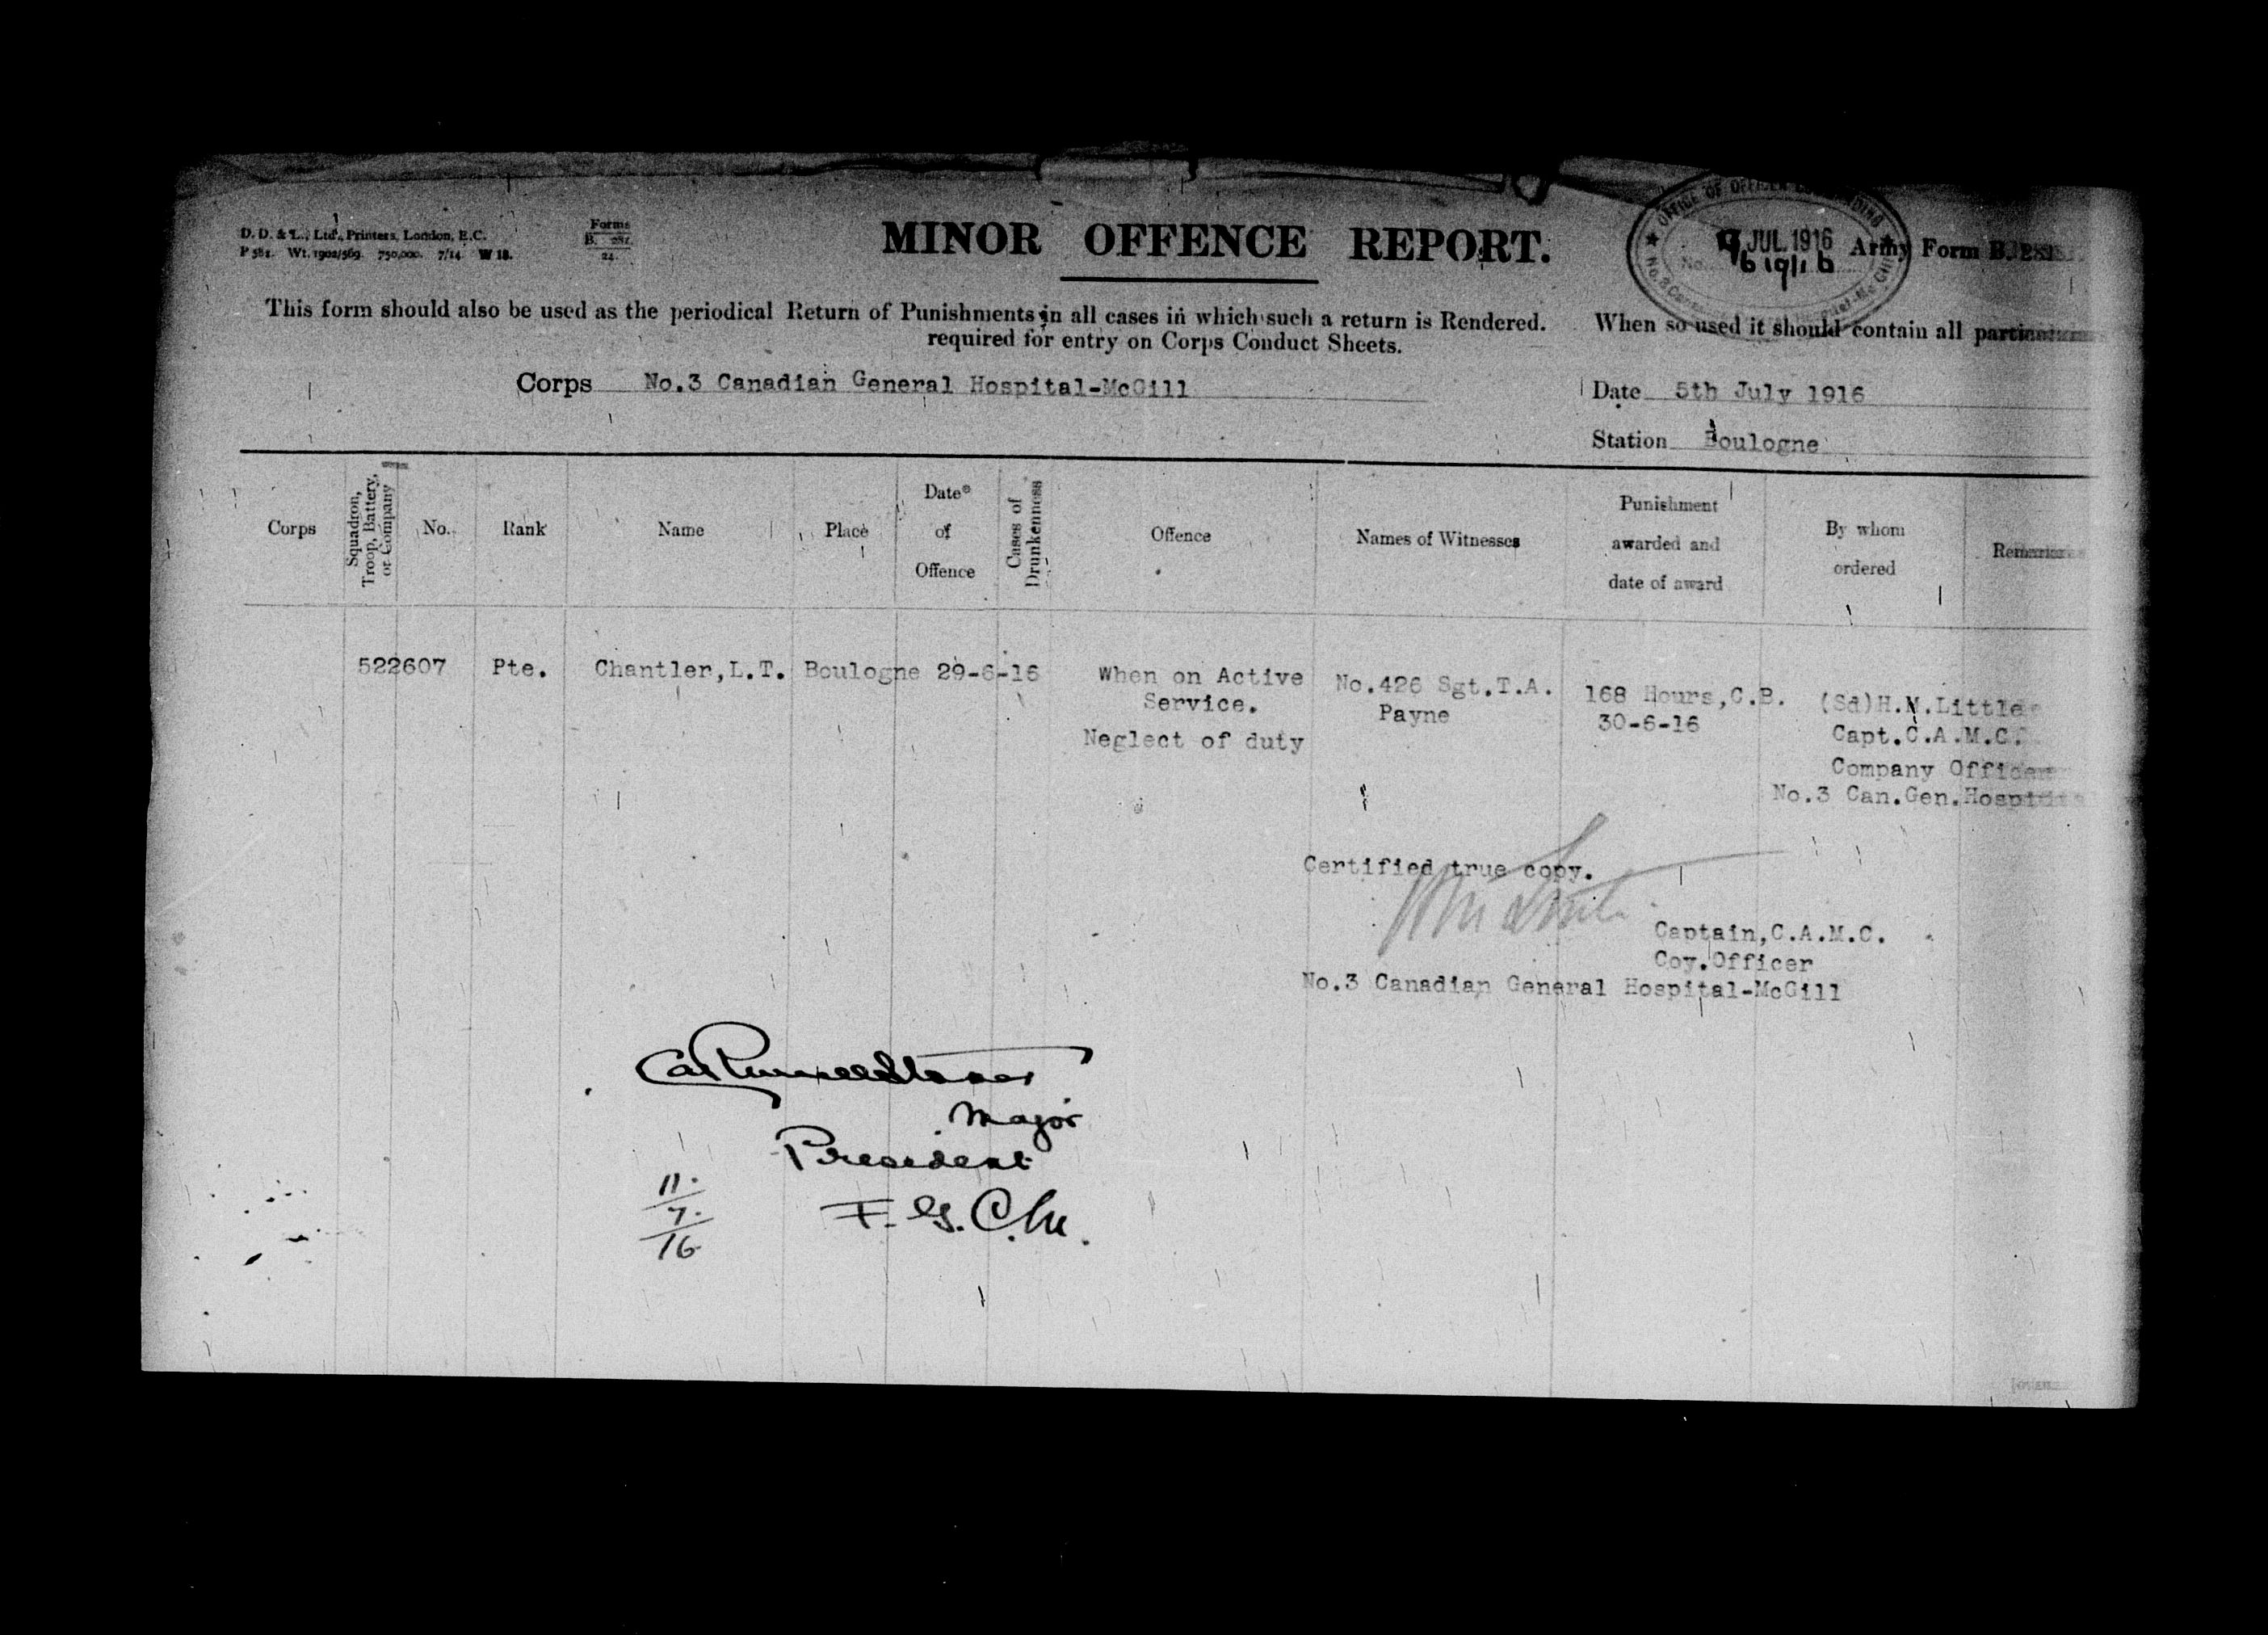 D. D. & L., Ltd., Printers, London, E.C.
P 581. Wt. 1902/569. 750,000. 7/14 W 18.
Forms
B. 281.
24
MINOR OFFENCE REPORT.
OFFICE OF OFFICER
JUL 1916
No.
Army Form B. 281.
This form should also be used as the periodical Return of Punishments in all cases in which such a return is Rendered. When so used it should contain all particulars
required for entry on Corps Conduct Sheets.
Corps No.3 Canadian General Hospital-McGill
Date 5th July 1916
Station Boulogne
Corps
Squadron,
Troop, Battery,
or Company
No.
Rank
Name
Place
Date
of
Offence
Cases of
Drunkenness
Offence
Names of Witnesses
Punishment
awarded and
date of award
By whom
ordered
Remarks
522607 Pte. Chantler,L.T. Boulogne 29-6-16
When on Active
Service.
Neglect of duty
No.426 Sgt.T.A.
Payne
168 Hours,C.B.
30-6-16
(Sd)H.M.Little
Capt.C.A.M.C.
Company Officer
No.3 Can.Gen.Hospital
Certified true copy.
Captain,C.A.M.C.
Coy.Officer
No.3 Canadian General Hospital-McGill
Major
President
F. G. C. M.
11.
7.
16